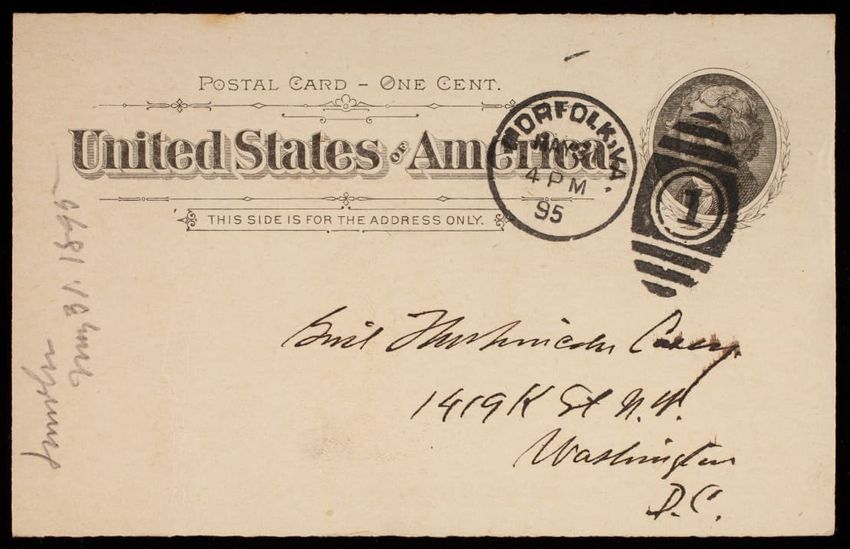 POSTAL CARD – ONE CENT.
United States OF America
THIS SIDE IS FOR THE ADDRESS ONLY.
NORFOLK, VA.
4 PM
95
1
Casey
1419 K St N.W.
Washington
D.C.